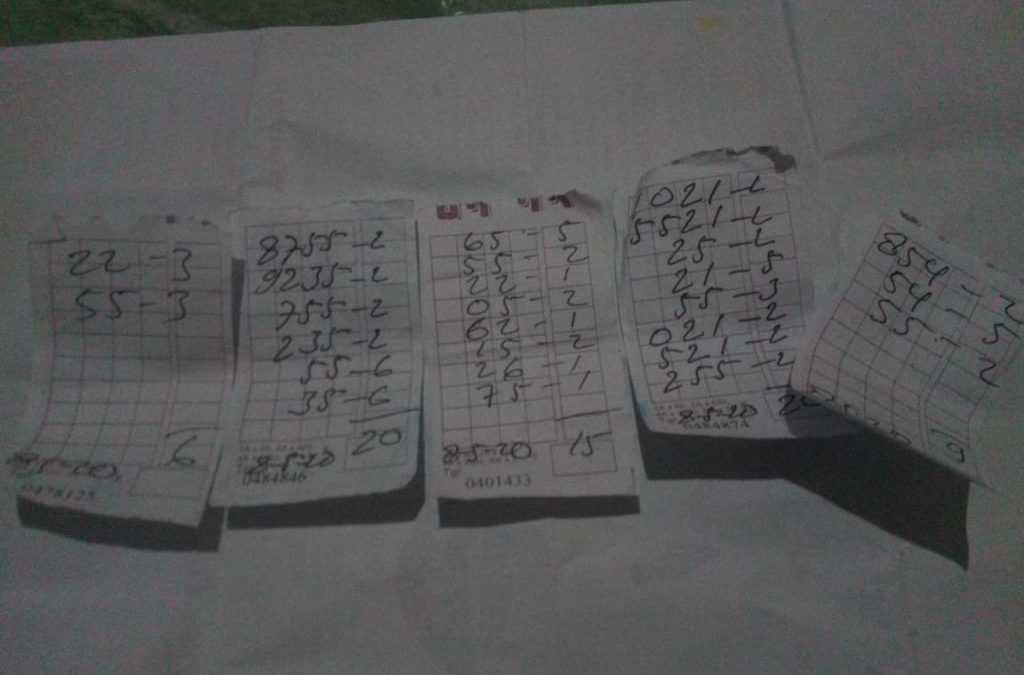 22 - 3
55 - 3
6
8-5-20
8755 - 2
9235 - 2
755 - 2
235 - 2
55 - 6
35 - 6
20
8-5-20
0484846
65 - 5
55 - 2
22 - 1
05 - 2
62 - 1
25 - 2
26 - 1
75 - 1
15
8-5-20
0401433
1021 - 2
5521 - 2
25 - 2
21 - 5
55 - 3
021 - 2
521 - 2
255 - 2
20
8-5-20
0484874
854 - 2
54 - 5
55 - 2
9